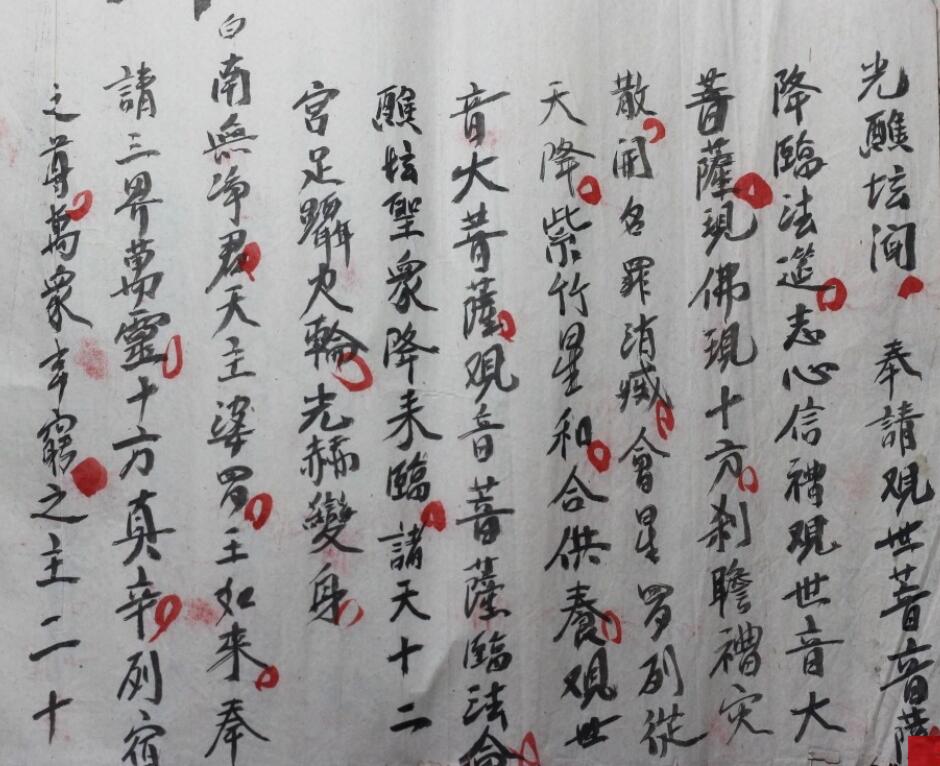 光醮坛间奉請观世菩音薩
降臨法筵志心信禮現世音大
菩薩現佛現十方剎瞻禮灾
散開名罪消滅會星罗列從
天降紫竹星和合供養观世
音大菩薩观音菩薩臨法會
醮坛聖衆降来臨諸天十二
宮足躡火輪光赫變身
白南無净君天主婆罗王如来奉
請三界萬靈十方真宰列宿
之尊萬衆玄窮之主二十